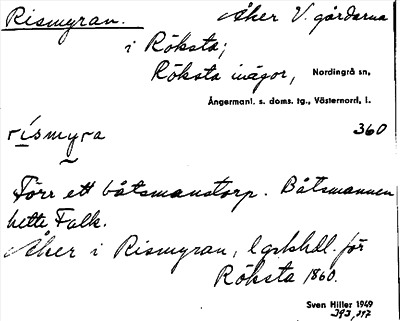 Rismyran. Åker V. gårdarna
i Röksta;
Röksta inägor, Nordingrå sn,
Ångermanl. s. doms. tg., Västernorrl. l.
rismyra 360
Förr ett båtsmanstorp. Båtsmannen
hette Falk.
Åker i Rismyran, lgskthdl. för
Röksta 1860.
Sven Hiller 1949
393,217